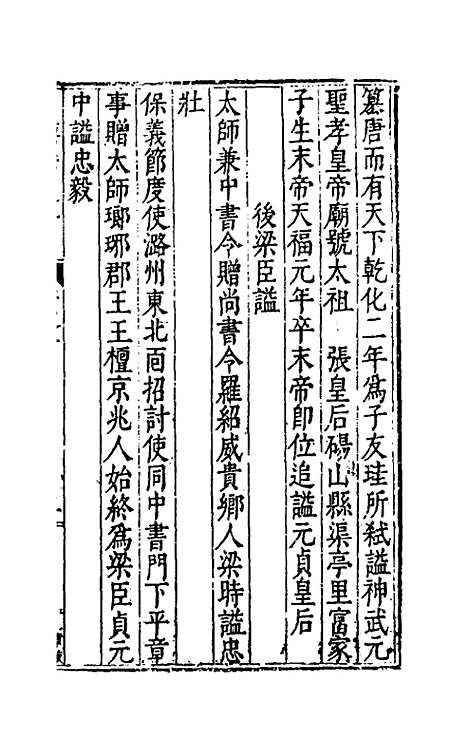 篡唐而有天下乾化二年爲子友珪所弒謚神武元
聖孝皇帝廟號太祖　張皇后碭山縣渠亭里富家
子生末帝天福元年卒末帝卽位追謚元貞皇后
後梁臣謚
太師兼中書令贈尚書令羅紹威貴鄉人梁時謚忠
壯
保義節度使潞州東北面招討使同中書門下平章
事贈太師瑯琊郡王王檀京兆人始終爲梁臣貞元
中謚忠毅